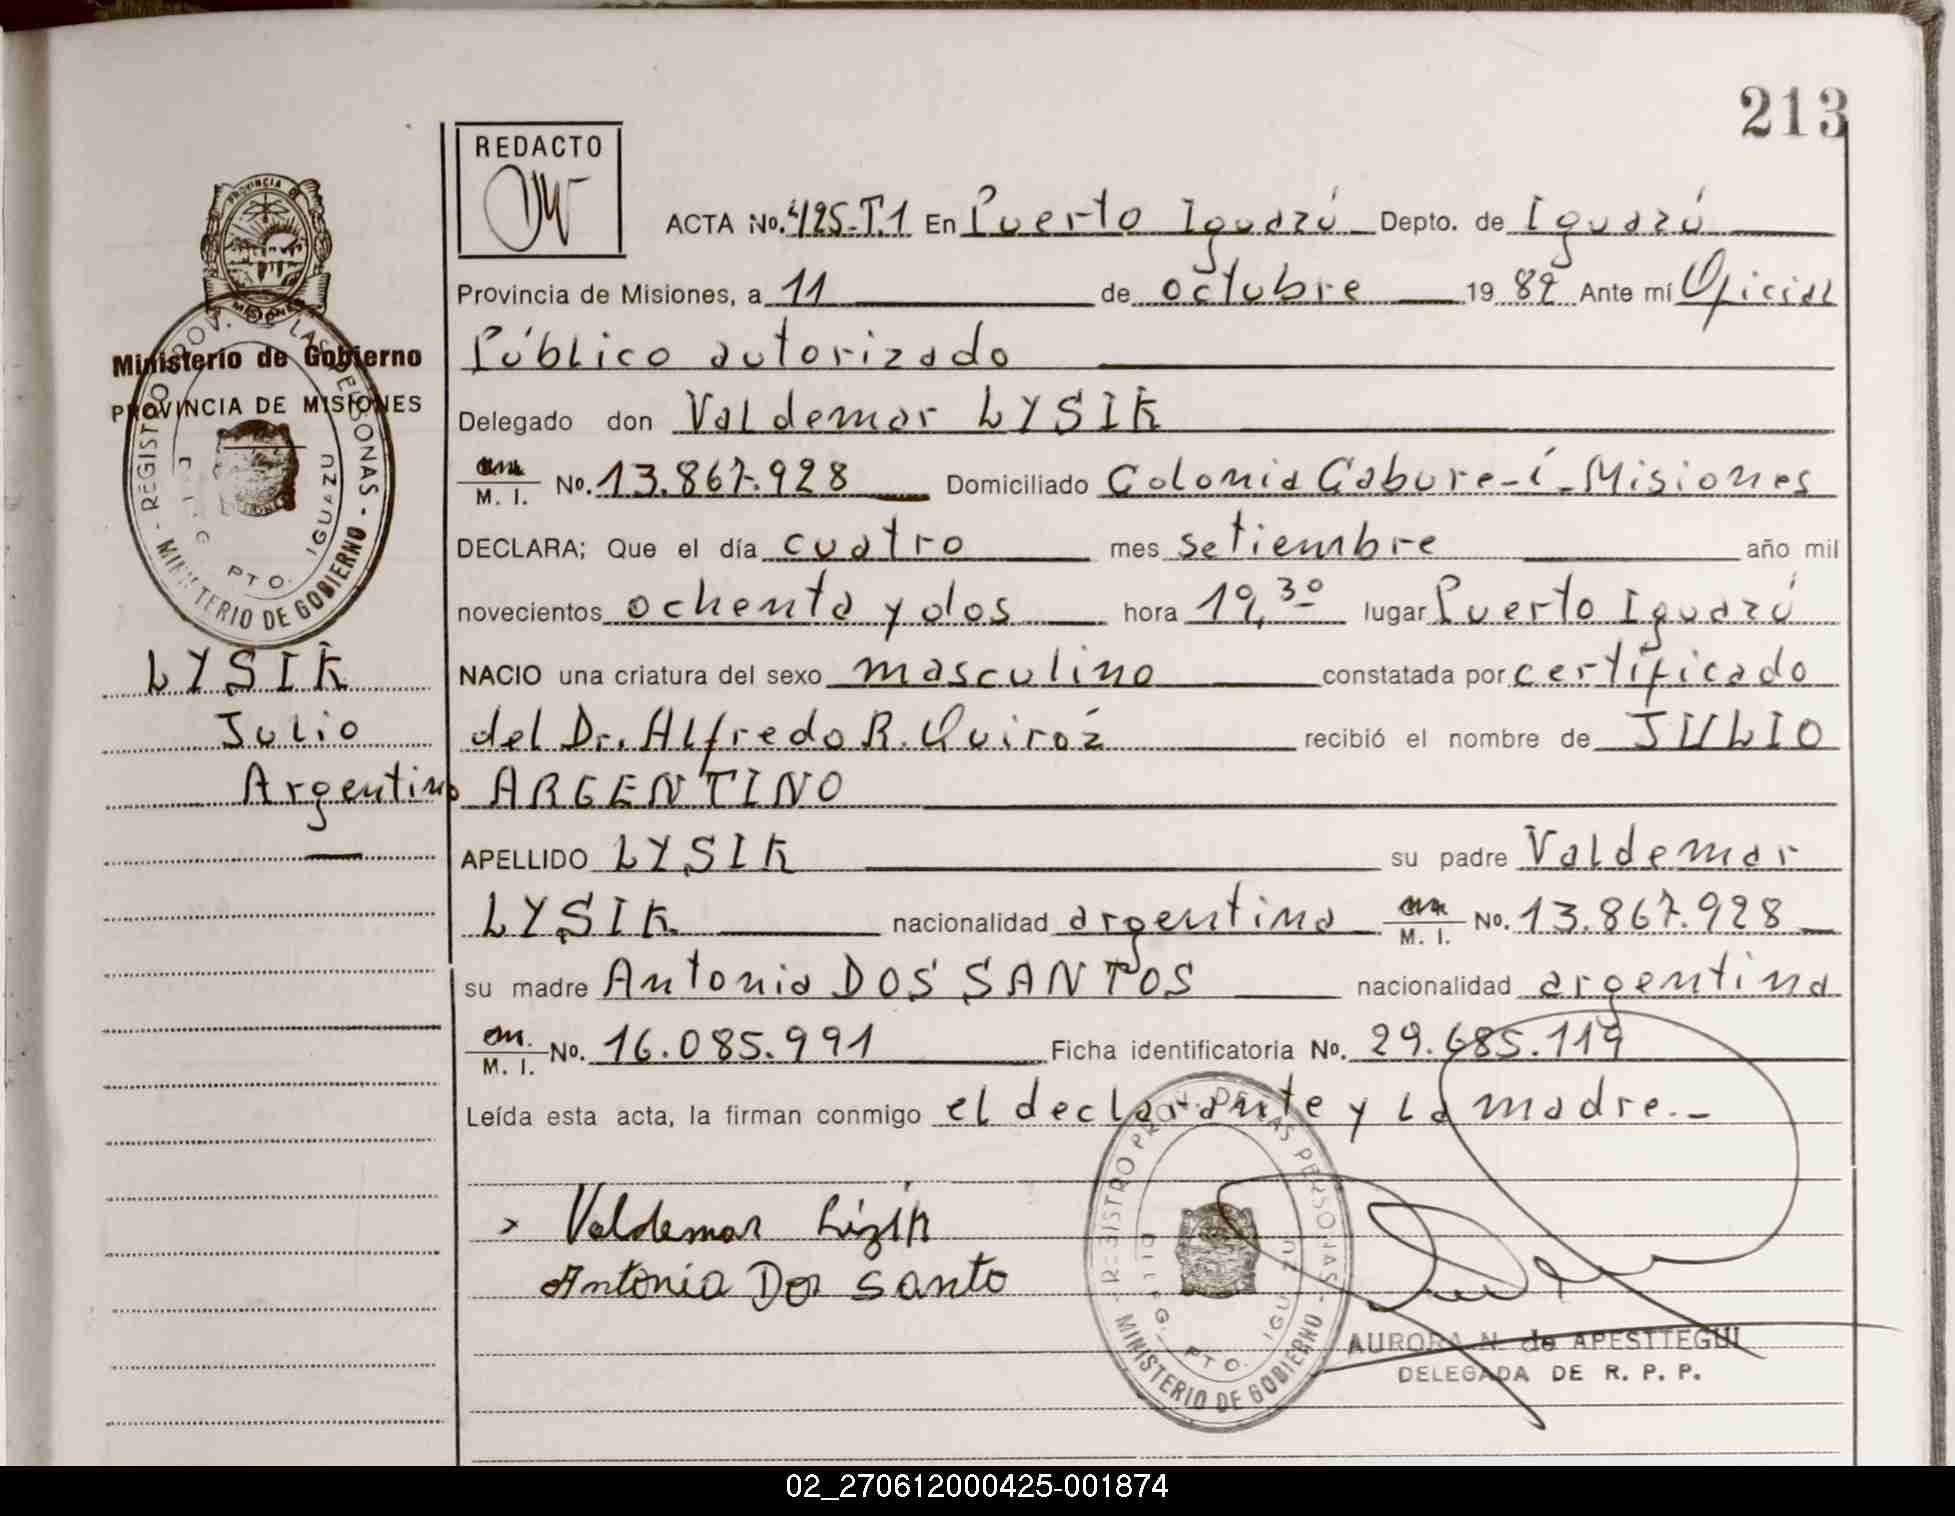 213
REDACTO
ACTA No. 425-T.1 En Puerto Iguazú Depto. de Iguazú
Provincia de Misiones, a 11 de octubre 1982 Ante mí Oficial
Público autorizado
Delegado don Valdemar LYSIK
M. I. No. 13.867.928 Domiciliado Colonia Cabure-í-Misiones
DECLARA; Que el día cuatro mes setiembre año mil
novecientos ochenta y dos hora 19,30 lugar Puerto Iguazú
NACIO una criatura del sexo masculino constatada por certificado
del Dr. Alfredo R. Quiroz recibió el nombre de JULIO
ARGENTINO
APELLIDO LYSIK su padre Valdemar
LYSIK nacionalidad argentina M. I. No. 13.867.928
su madre Antonia DOS SANTOS nacionalidad argentina
M. I. No. 16.085.991 Ficha identificatoria No. 29.685.119
Leída esta acta, la firman conmigo el declarante y la madre.-
Valdemar Lizik
Antonia Dos Santo
AURORA N. de APESTTEGUI
DELEGADA DE R. P. P.
PROVINCIA DE
MISIONES
Ministerio de Gobierno
PROVINCIA DE MISIONES
LYSIK
Julio
Argentino
REGISTRO PROV. DE LAS PERSONAS
MINISTERIO DE GOBIERNO
PTO. IGUAZU
REGISTRO PROV. DE LAS PERSONAS
MINISTERIO DE GOBIERNO
PTO. IGUAZU
02_270612000425-001874